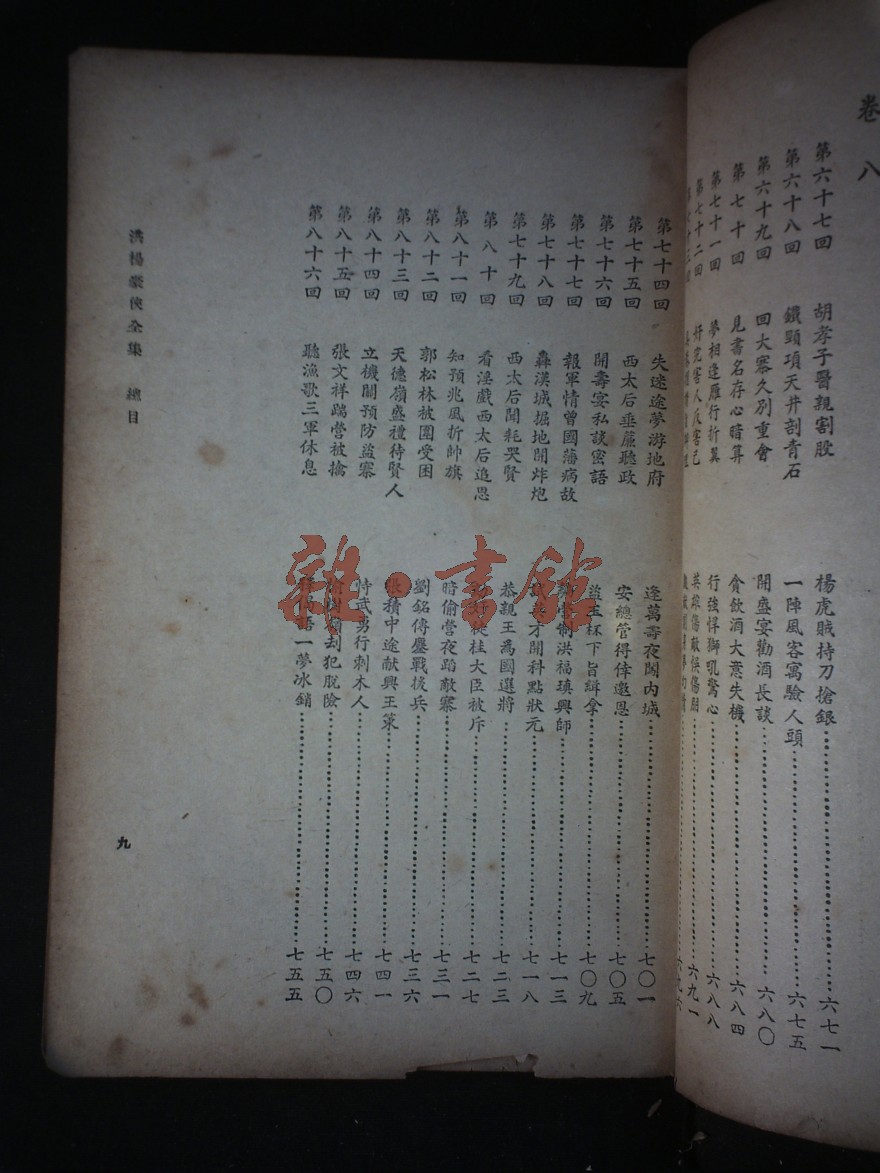 卷八
第六十七回 胡孝子醫親割股 楊虎賊持刀搶銀 六七一
第六十八回 鐵頸項天井剖青石 一陣風客寓驗人頭 六七五
第六十九回 回大寨久別重會 開盛宴勸酒長談 六八〇
第七十回 見書名存心暗算 貪飲酒大意失機 六八四
第七十一回 夢相逢雁行折翼 行強悍獅吼驚心 六八八
第七十二回 奸究害人反害己 英雄傷敵悞傷朋 六九一
第七十四回 失迷途夢游地府 逢萬壽夜鬧內城 七〇一
第七十五回 西太后垂簾聽政 安總管得倖邀恩 七〇五
第七十六回 開壽宴私談密語 盜玉杯下旨緝拿 七〇九
第七十七回 報軍情曾國藩病故 制洪福瑱興師 七一三
第七十八回 轟漢城掘地開炸炮 才開科點狀元 七一八
第七十九回 西太后聞耗哭賢 恭親王為國選將 七二三
第八十回 看淫戲西太后追恩 桂大臣被斥 七二七
第八十一回 知預兆風折帥旗 暗偷營夜蹈敵寨 七三一
第八十二回 郭松林被圍受困 劉銘傳鏖戰後兵 七三六
第八十三回 天德嶺盛禮待賢人 張積中途献興王策 七四一
第八十四回 立機關預防盜寨 恃武勇行刺木人 七四六
第八十五回 張文祥踹營被擒 樹 刦犯脫險 七五〇
第八十六回 聽漁歌三軍休息 語一夢冰銷 七五五
洪楊豪俠全集 總目
九
雜·書館